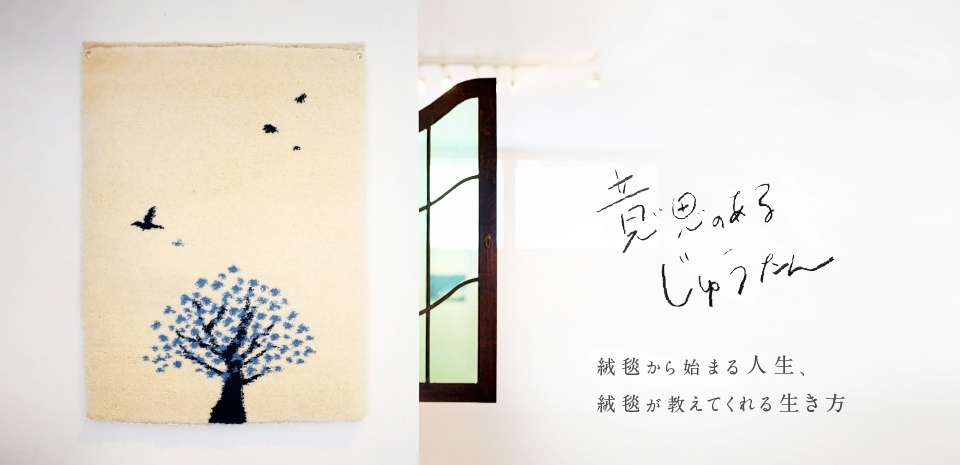 意思のある
じゅうたん
絨毯から始まる人生、
絨毯が教えてくれる生き方